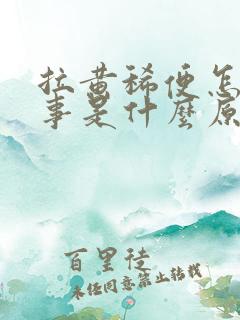 拉黄稀便怎
事是什麼原
百里徒
未经同意禁止转载